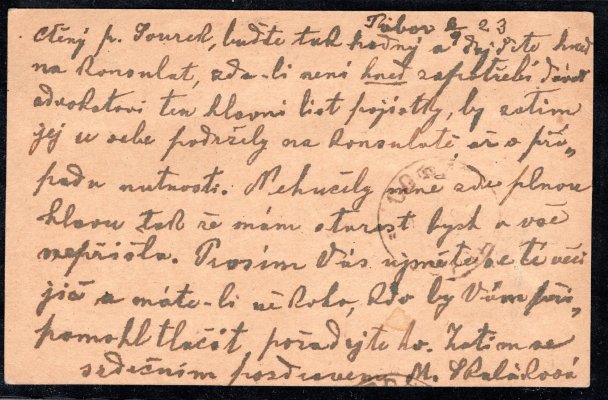 Tábor 23
ctěný p. Sourek, buďte tak hodný a dojděte hned
na konsulat, zda-li není hned zapotřebí dávat
advokatovi ten hlavní list pojistky, by zatim
jej u sebe podržely na konsulatě, až v pří„
padu nutnosti. Nehučely mne zde plnou
hlavu tak že mám starost bych o vše
nepřišla. Prosím Vás ujměte se té věci
již a máte-li někoho, kdo by Vám při„
pomohl tlačit pořadejte ho. Zatim se
srdečním pozdravem M. Skaláková